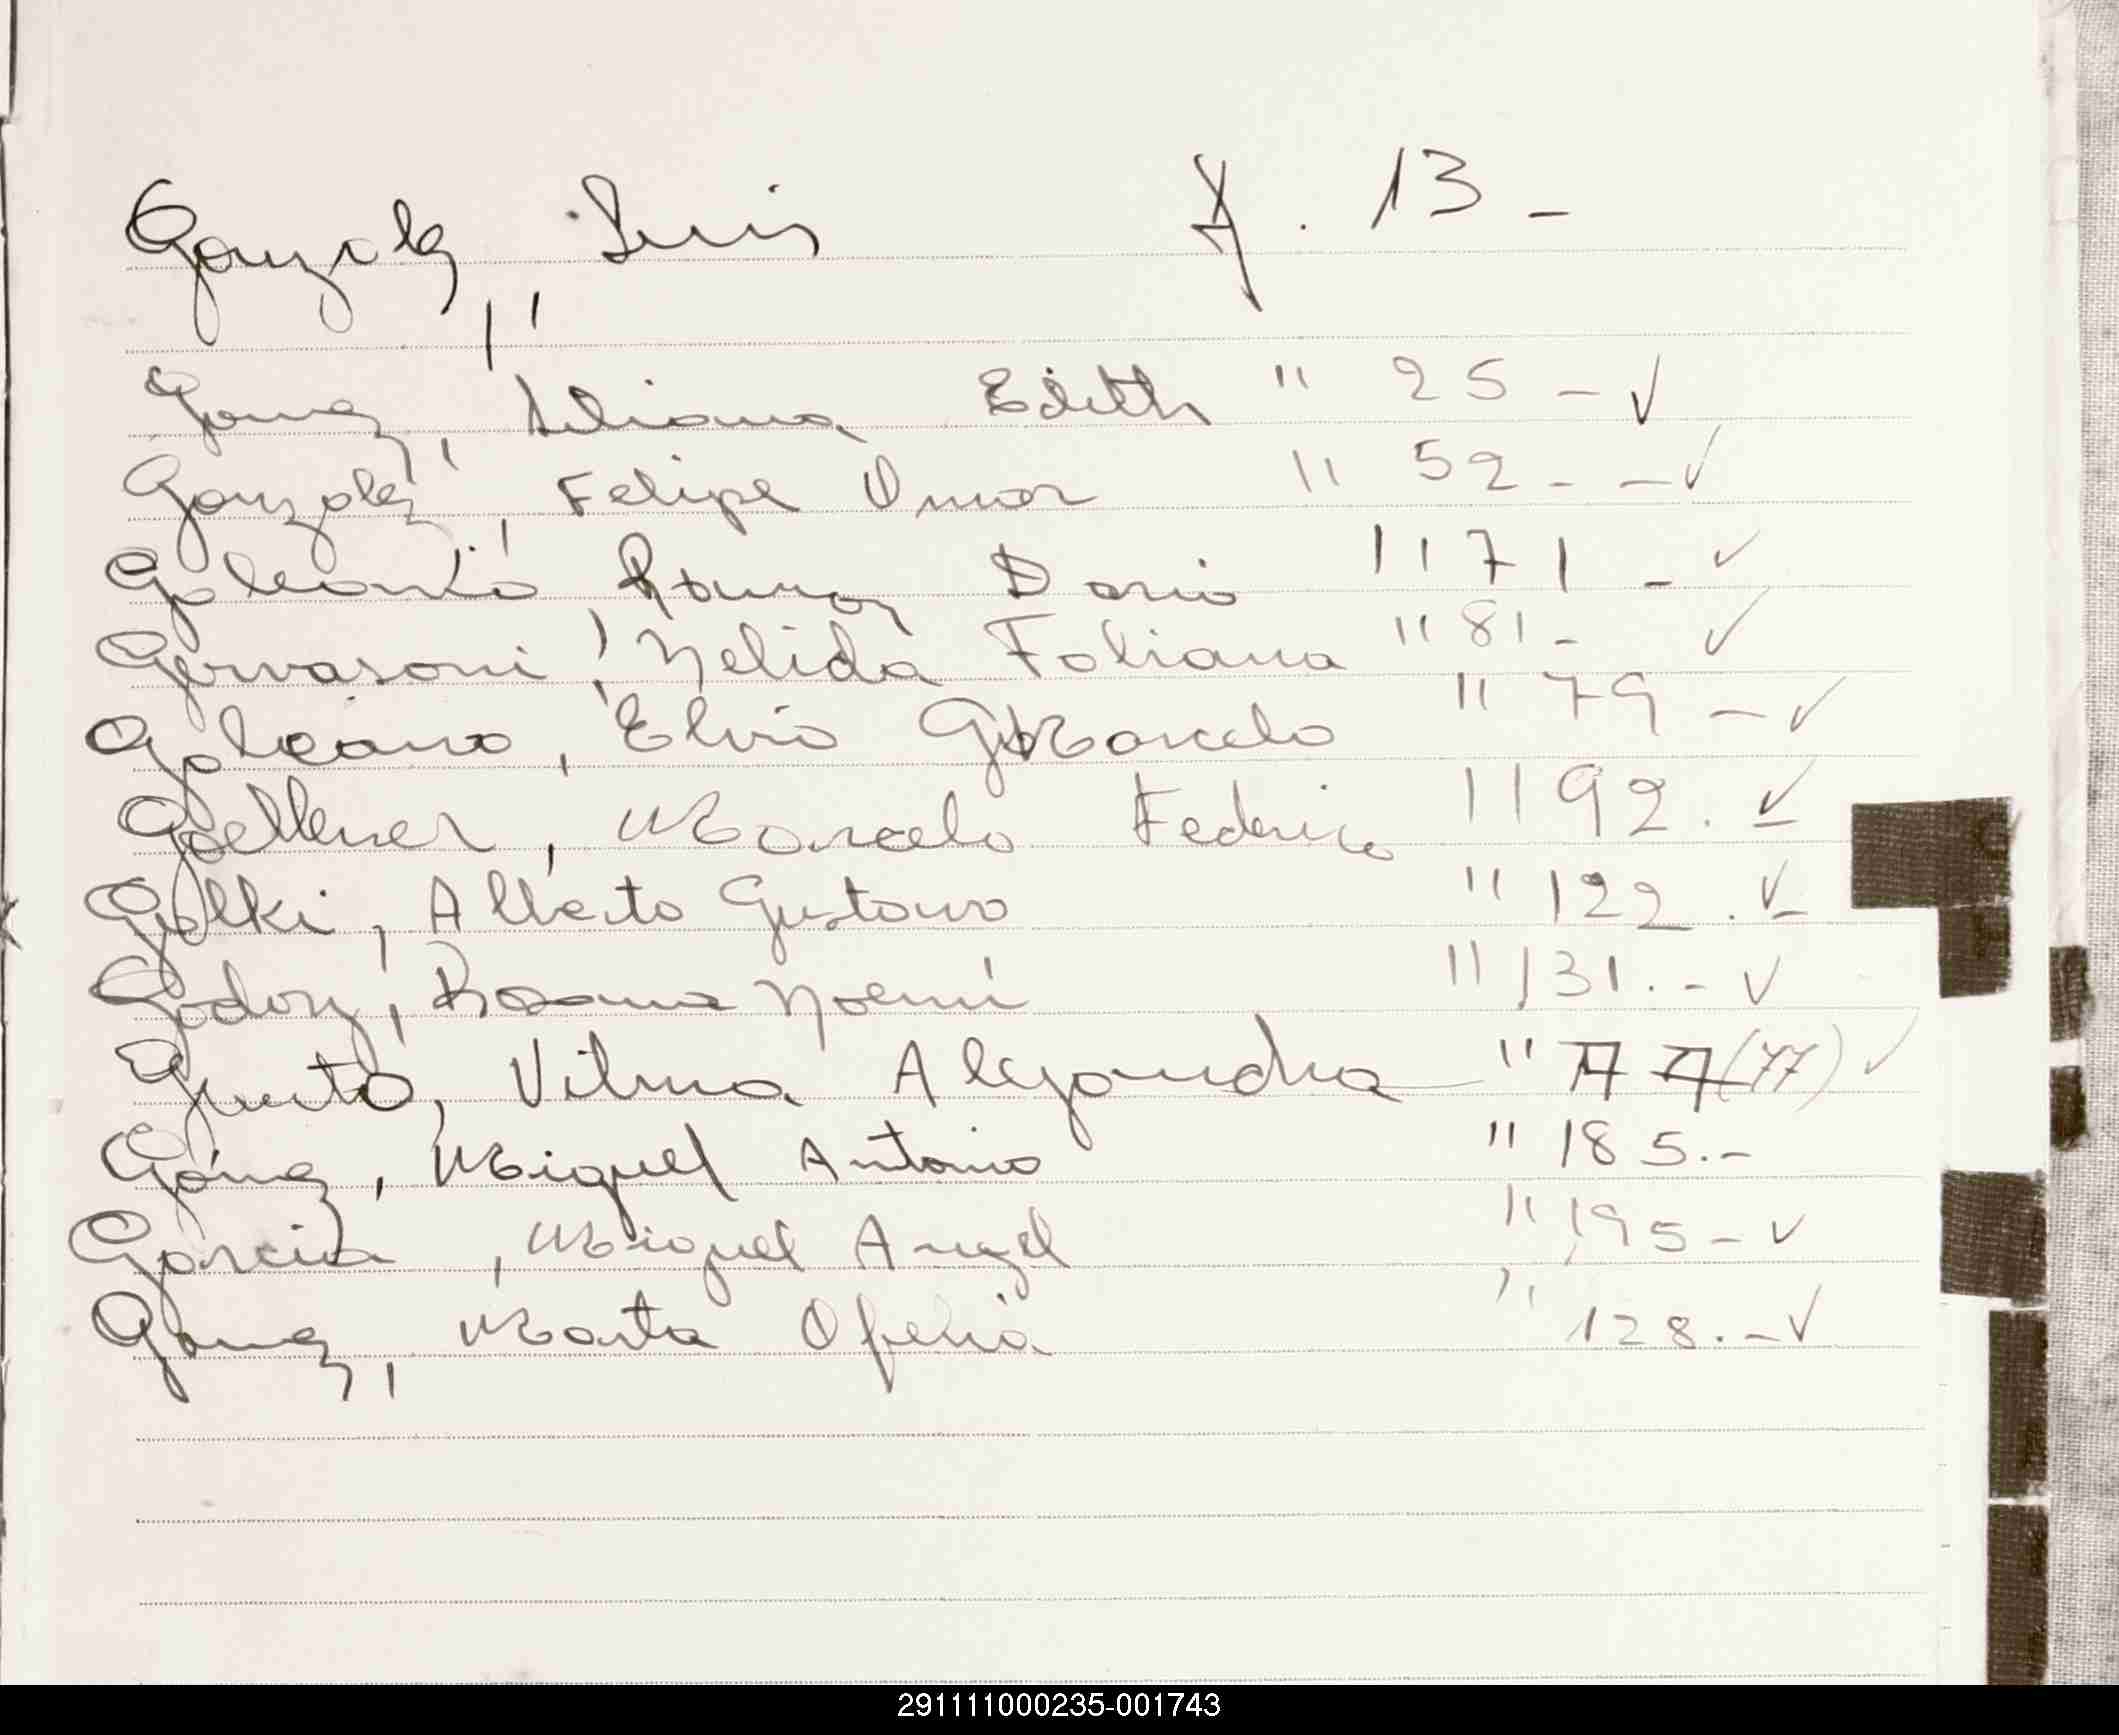 Gonzalez, Luis F. 13 -
"
Gomez, Liliana Edith " 25 - ✓
Gonzalez, Felipe Omar " 52 - - ✓
Ramon Dario " 71 - ✓
Gervasoni, Nelida Fabiana " 81 - ✓
Galeano, Elvio Marcelo " 79 - ✓
Goettener, Marcelo Federico " 92 . ✓
Golki, Alberto Gustavo " 122 . ✓
Godoy, Rosana Noemí " 131 . - ✓
Vilma Alejandra " 77 (77) ✓
Gómez, Miguel Antonio " 185 . -
Garcia, Miguel Angel " 195 - ✓
Gomez, Marta Ofelia " 128 . - ✓
291111000235-001743